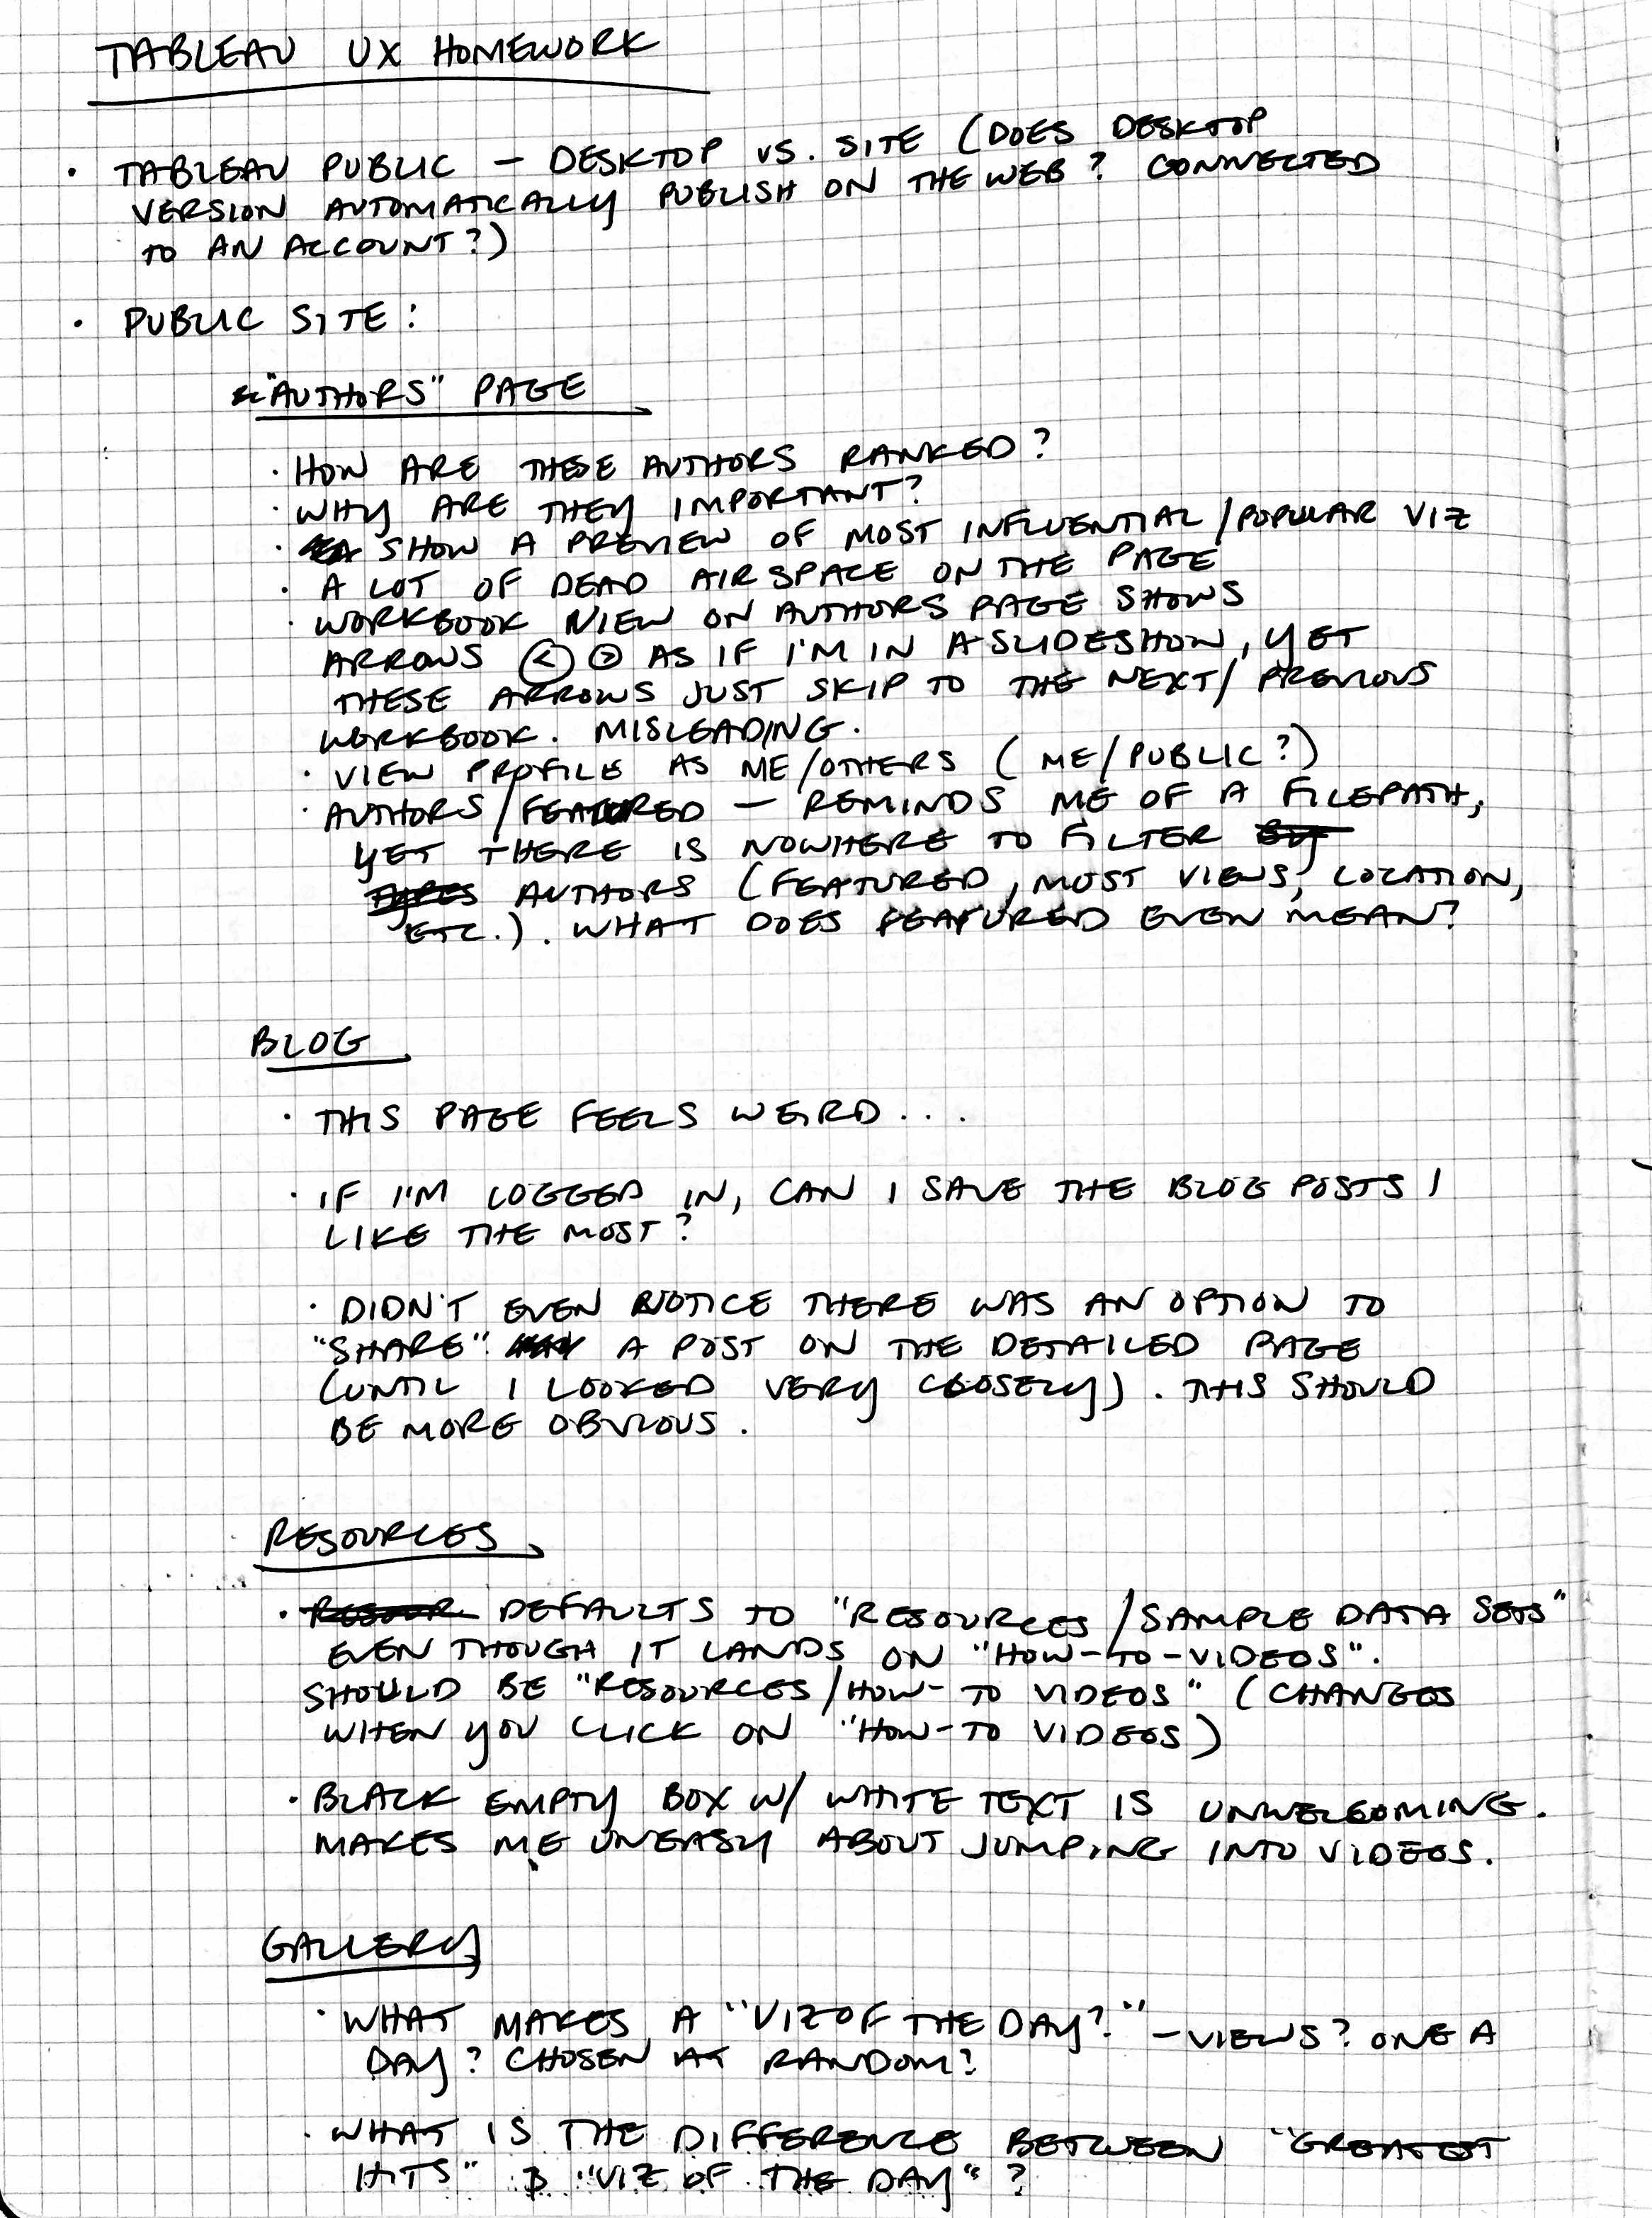 TABLEAU UX HOMEWORK
• TABLEAU PUBLIC — DESKTOP VS. SITE (DOES DESKTOP
VERSION AUTOMATICALLY PUBLISH ON THE WEB? CONNECTED
TO AN ACCOUNT?)
• PUBLIC SITE:
"AUTHORS" PAGE
• HOW ARE THESE AUTHORS RANKED?
• WHY ARE THEY IMPORTANT?
• SHOW A PREVIEW OF MOST INFLUENTIAL/POPULAR VIZ
• A LOT OF DEAD AIR SPACE ON THE PAGE
• WORKBOOK VIEW ON AUTHORS PAGE SHOWS
ARROWS < > AS IF I'M IN A SLIDESHOW, YET
THESE ARROWS JUST SKIP TO THE NEXT/PREVIOUS
WORKBOOK. MISLEADING.
• VIEW PROFILE AS ME/OTHERS (ME/PUBLIC?)
• AUTHORS/FEATURED — REMINDS ME OF A FILEPATH,
YET THERE IS NOWHERE TO FILTER BY
TYPES AUTHORS (FEATURED, MOST VIEWS, LOCATION,
ETC.). WHAT DOES FEATURED EVEN MEAN?
BLOG
• THIS PAGE FEELS WEIRD...
• IF I'M LOGGED IN, CAN I SAVE THE BLOG POSTS I
LIKE THE MOST?
• DIDN'T EVEN NOTICE THERE WAS AN OPTION TO
"SHARE" A POST ON THE DETAILED PAGE
(UNTIL I LOOKED VERY CLOSELY). THIS SHOULD
BE MORE OBVIOUS.
RESOURCES
• RESOUR DEFAULTS TO "RESOURCES/SAMPLE DATA SETS"
EVEN THOUGH IT LANDS ON "HOW-TO-VIDEOS".
SHOULD BE "RESOURCES/HOW-TO VIDEOS" (CHANGES
WHEN YOU CLICK ON "HOW-TO VIDEOS)
• BLACK EMPTY BOX W/ WHITE TEXT IS UNWELCOMING.
MAKES ME UNEASY ABOUT JUMPING INTO VIDEOS.
GALLERY
• WHAT MAKES A "VIZ OF THE DAY?" — VIEWS? ONE A
DAY? CHOSEN AT RANDOM?
• WHAT IS THE DIFFERENCE BETWEEN "GREATEST
HITS" & "VIZ OF THE DAY"?